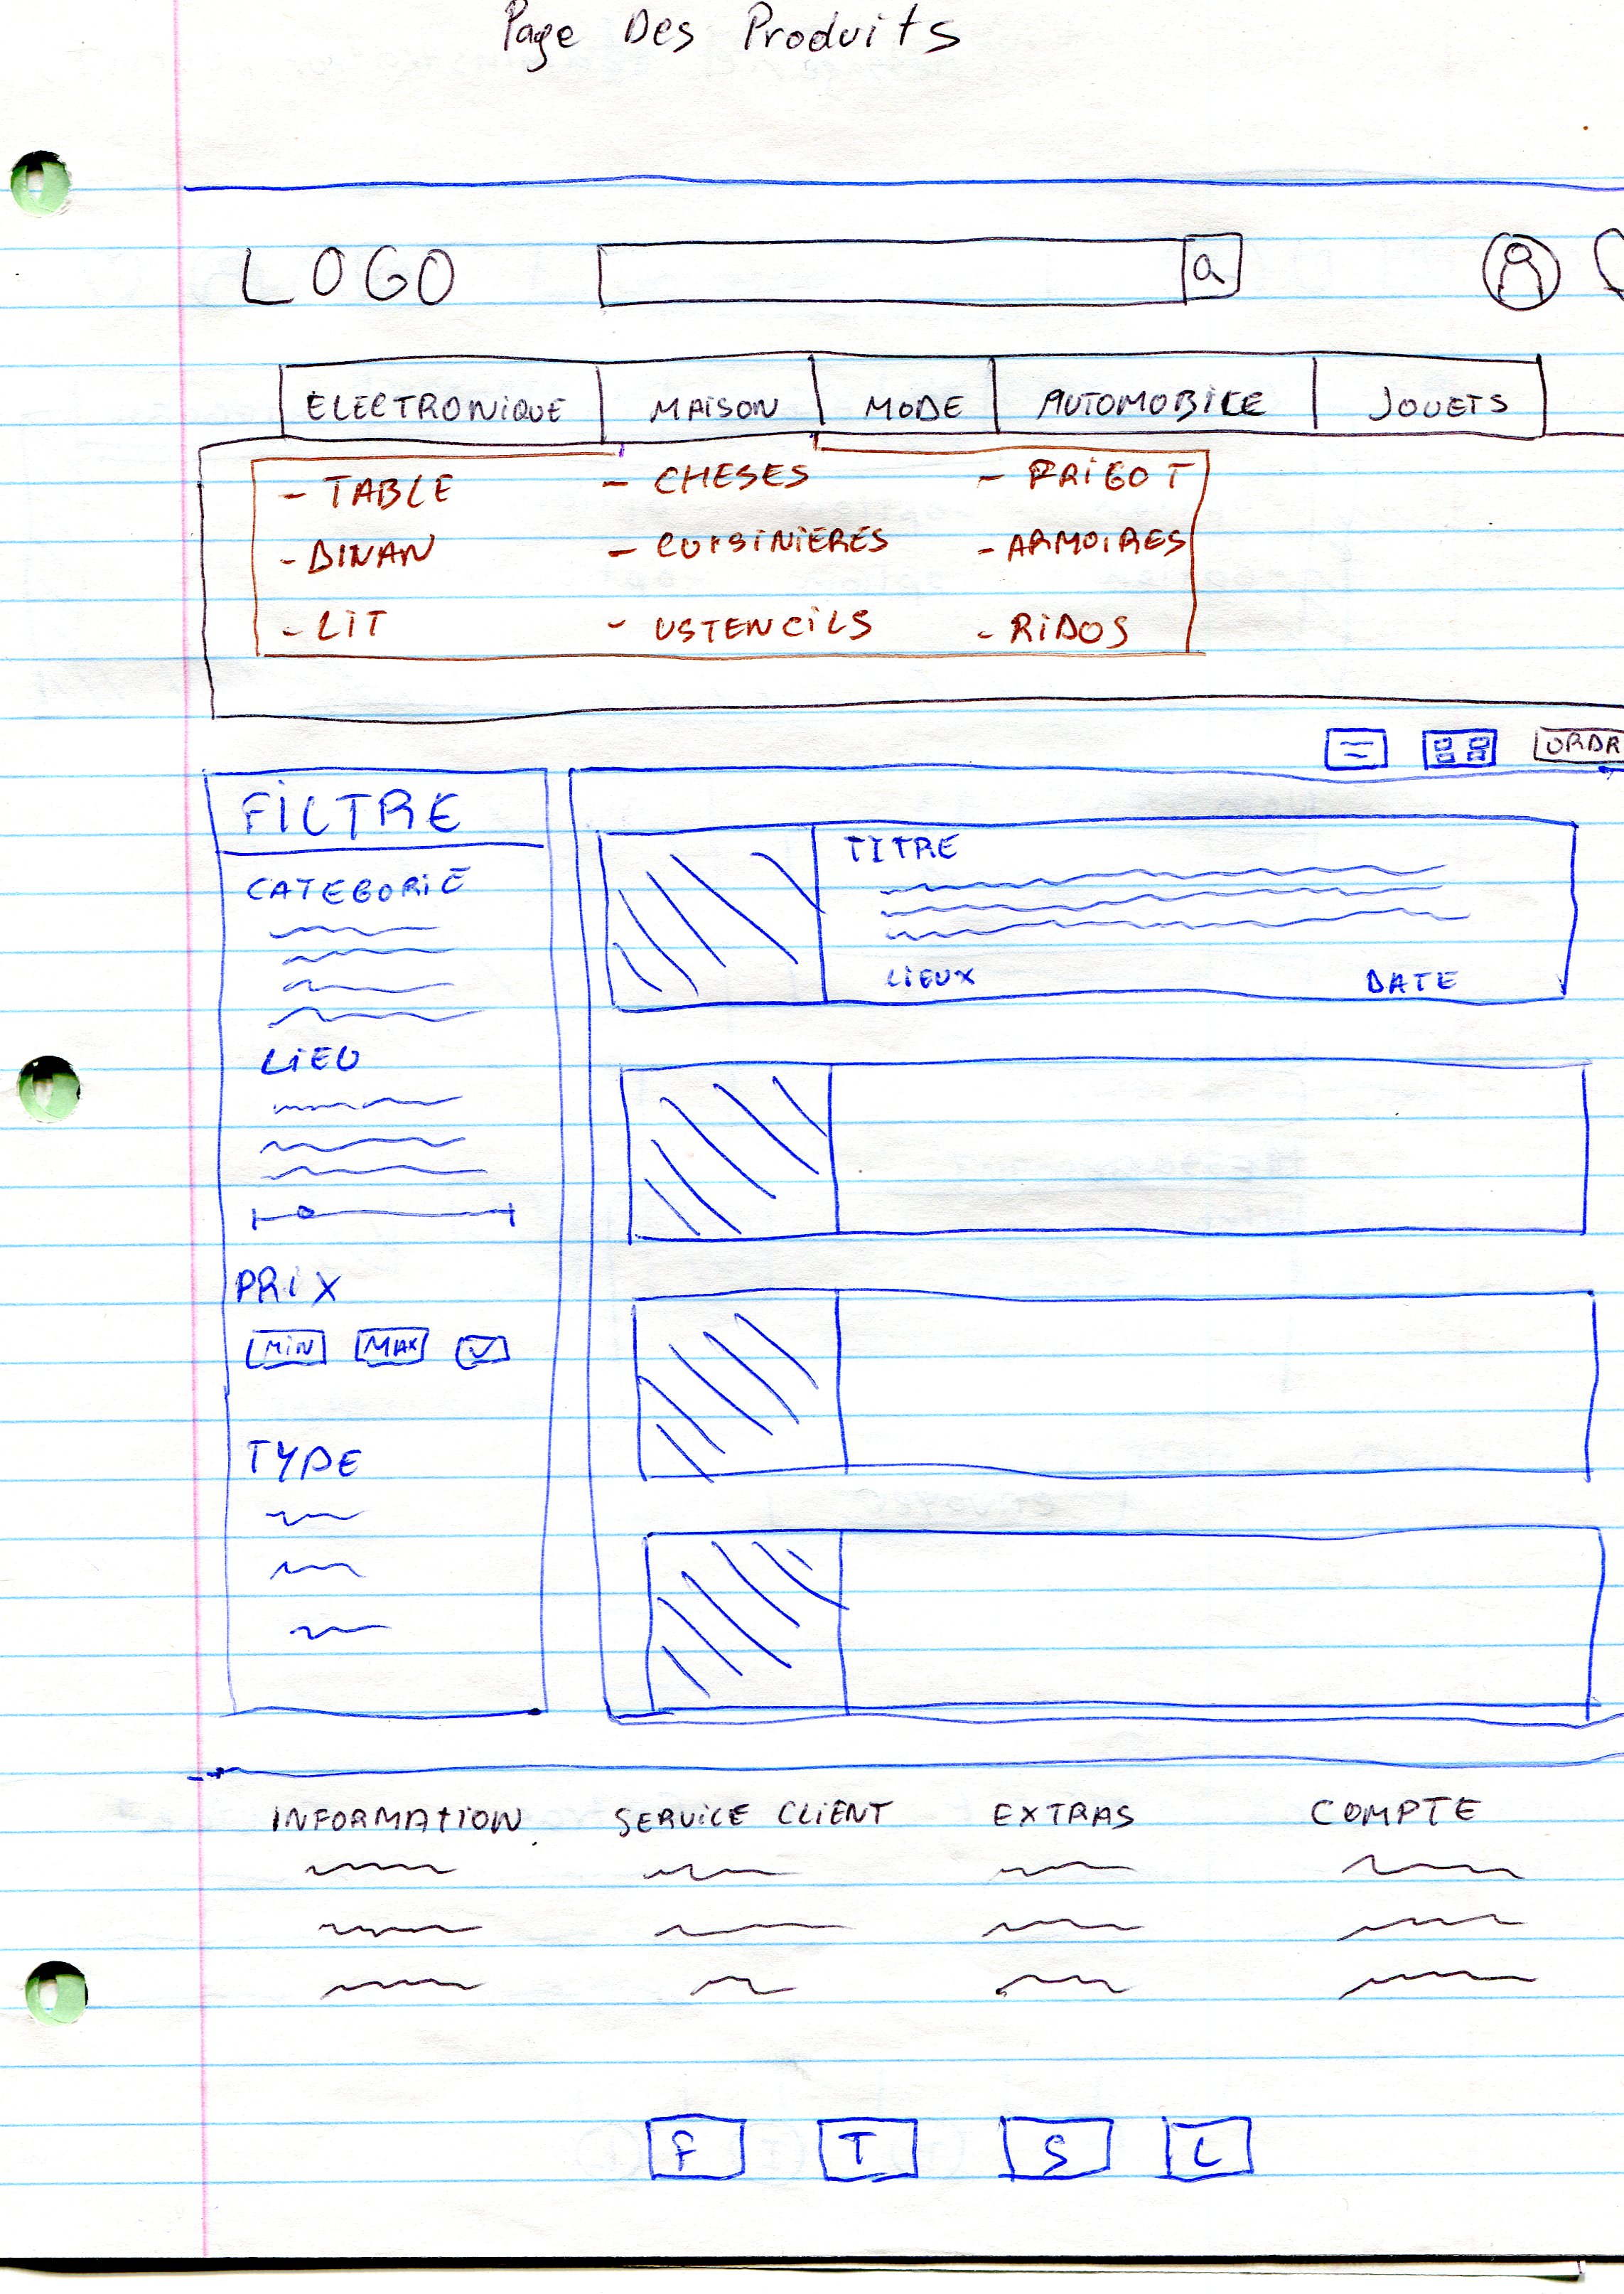 Page Des Produits
LOGO
ELECTRONIQUE MAISON MODE AUTOMOBILE JOUETS
- TABLE - CHESES - FRIGOT
- DINAN - CUISINIERES - ARMOIRES
- LIT - USTENCILS - RIDOS
ORDR
FILTRE
CATEGORIE
LIEU
PRIX
MIN MAX
TYPE
TITRE
LIEUX DATE
INFORMATION SERVICE CLIENT EXTRAS COMPTE
F T S L